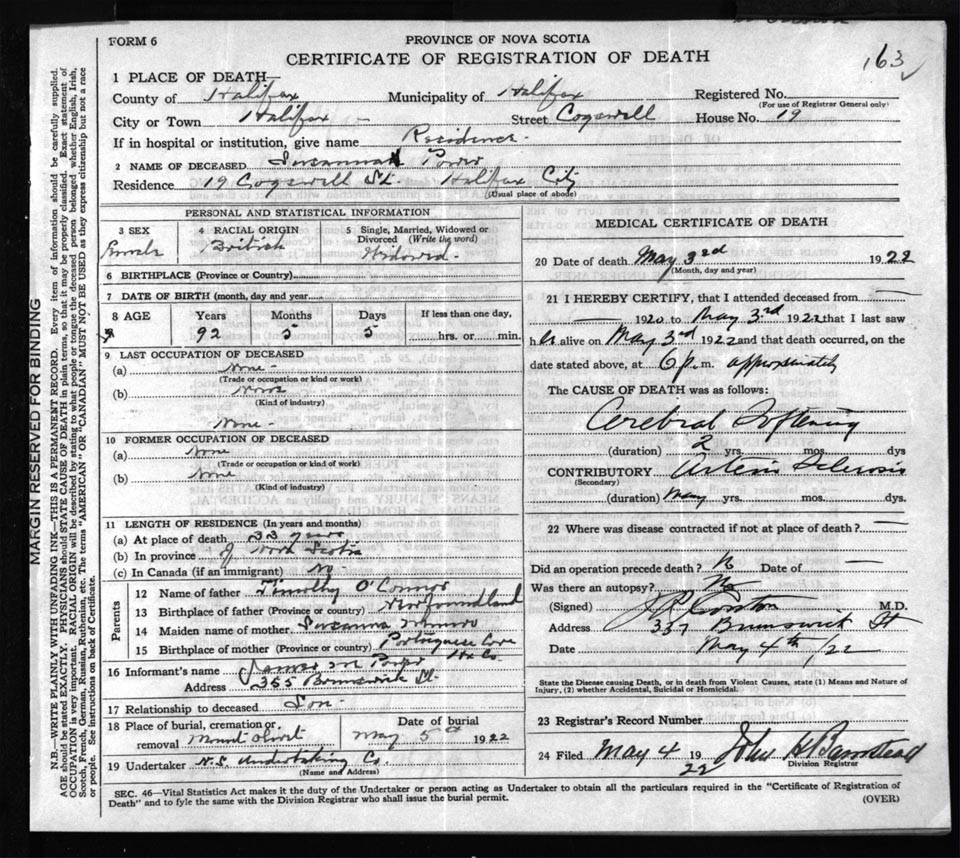 FORM 6
PROVINCE OF NOVA SCOTIA
CERTIFICATE OF REGISTRATION OF DEATH
163
1 PLACE OF DEATH—
County of Halifax Municipality of Halifax Registered No.
(For use of Registrar General only)
City or Town Halifax Street Cogswell House No. 19
If in hospital or institution, give name Residence
2 NAME OF DECEASED Susannah Power
Residence 19 Cogswell St. Halifax City
(Usual place of abode)
PERSONAL AND STATISTICAL INFORMATION
3 SEX
Female
4 RACIAL ORIGIN
British
5 Single, Married, Widowed or
Divorced (Write the word)
Widowed
6 BIRTHPLACE (Province or Country)
7 DATE OF BIRTH (month, day and year)
8 AGE Years Months Days If less than one day,
92 5 5 hrs. or min.
9 LAST OCCUPATION OF DECEASED
(a) None
(Trade or occupation or kind or work)
(b) None
(Kind of industry)
None
10 FORMER OCCUPATION OF DECEASED
(a) None
(Trade or occupation or kind of work)
(b) None
(Kind of industry)
11 LENGTH OF RESIDENCE (In years and months)
(a) At place of death 33 years
(b) In province of Nova Scotia
(c) In Canada (if an immigrant) No
Parents
12 Name of father Timothy O'Connor
13 Birthplace of father (Province or country) Newfoundland
14 Maiden name of mother Susanna
15 Birthplace of mother (Province or country) Portuguese Cove
Hx Co.
16 Informant's name James M Power
Address 365 Brunswick St.
17 Relationship to deceased Son
18 Place of burial, cremation or Date of burial
removal Mount Olivet May 5th 1922
19 Undertaker N.S. Undertaking Co.
(Name and Address)
MEDICAL CERTIFICATE OF DEATH
20 Date of death May 3rd 1922
(Month, day and year)
21 I HEREBY CERTIFY, that I attended deceased from
1920 to May 3rd 1922 that I last saw
her alive on May 3rd 1922 and that death occurred, on the
date stated above, at 6 p.m. approximately
The CAUSE OF DEATH was as follows:
Cerebral Softening
(duration) 2 yrs. mos. dys
CONTRIBUTORY Arterio Sclerosis
(Secondary)
(duration) Many yrs. mos. dys.
22 Where was disease contracted if not at place of death?
Did an operation precede death? No Date of
Was there an autopsy? No
(Signed) M.D.
Address 337 Brunswick St
Date May 4th /22
State the Disease causing Death, or in death from Violent Causes, state (1) Means and Nature of
Injury, (2) whether Accidental, Suicidal or Homicidal.
23 Registrar's Record Number
24 Filed May 4 1922 John H Barnstead
Division Registrar
SEC. 46—Vital Statistics Act makes it the duty of the Undertaker or person acting as Undertaker to obtain all the particulars required in the "Certificate of Registration of
Death" and to fyle the same with the Division Registrar who shall issue the burial permit.
(OVER)
MARGIN RESERVED FOR BINDING
N.B.—WRITE PLAINLY WITH UNFADING INK—THIS IS A PERMANENT RECORD. Every item of information should be carefully supplied.
AGE should be stated EXACTLY. PHYSICIANS should STATE CAUSE OF DEATH in plain terms, so that it may be properly classified. Exact statement of
OCCUPATION is very important. RACIAL ORIGIN will be described by stating to what people or tongue the deceased person belonged, whether English, Irish,
Scotch, French, German, Russian, Ruthenian, etc. The terms "AMERICAN" OR "CANADIAN" MUST NOT BE USED as they express citizenship but not a race
or people. See instructions on back of Certificate.